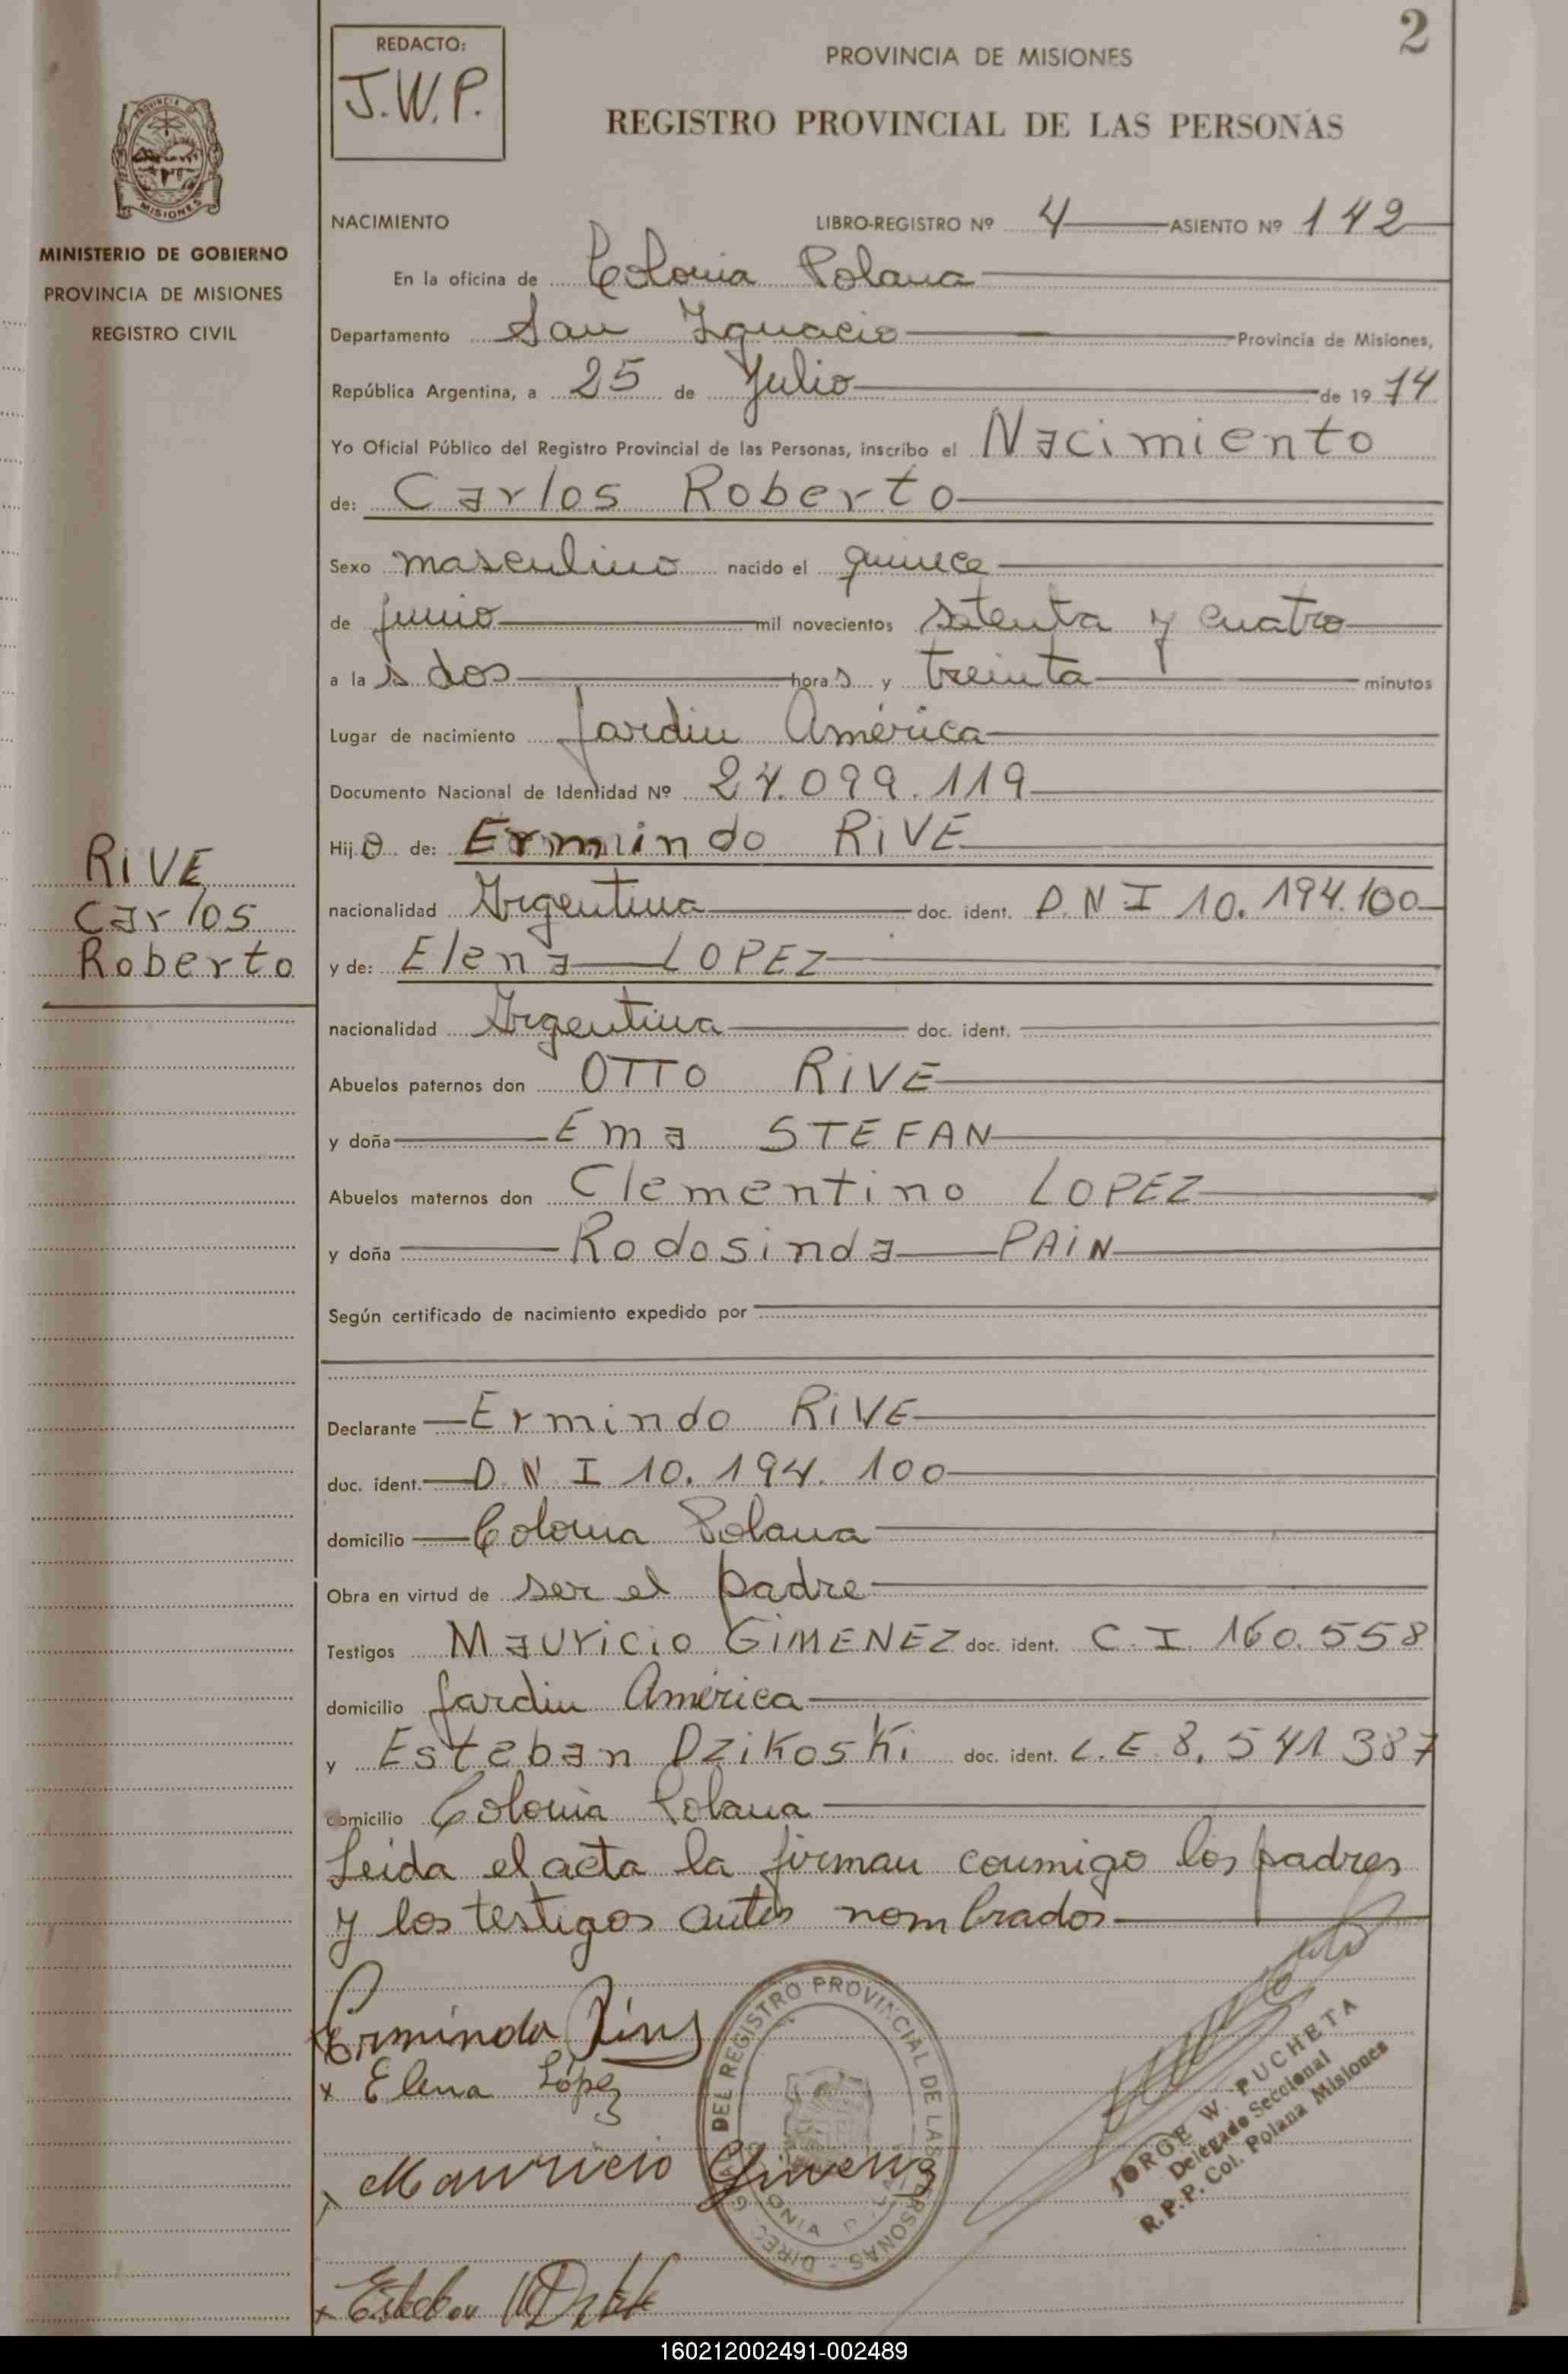 2
REDACTO:
J.W.P.
PROVINCIA DE MISIONES
REGISTRO PROVINCIAL DE LAS PERSONAS
PROVINCIA DE
MISIONES
MINISTERIO DE GOBIERNO
PROVINCIA DE MISIONES
REGISTRO CIVIL
RIVE
Carlos
Roberto
NACIMIENTO LIBRO-REGISTRO Nº 4 ASIENTO Nº 142
En la oficina de Colonia Polana
Departamento San Ignacio Provincia de Misiones,
República Argentina, a 25 de Julio de 1974
Yo Oficial Público del Registro Provincial de las Personas, inscribo el Nacimiento
de: Carlos Roberto
Sexo masculino nacido el quince
de junio mil novecientos setenta y cuatro
a las dos horas y treinta minutos
Lugar de nacimiento Jardin América
Documento Nacional de Identidad Nº 24.099.119
Hijo de: Ermindo RIVE
nacionalidad Argentina doc. ident. D.N.I 10.194.100
y de: Elena LOPEZ
nacionalidad Argentina doc. ident.
Abuelos paternos don OTTO RIVE
y doña Ema STEFAN
Abuelos maternos don Clementino LOPEZ
y doña Rodosinda PAIN
Según certificado de nacimiento expedido por
Declarante Ermindo RIVE
doc. ident. D.N.I 10.194.100
domicilio Colonia Polana
Obra en virtud de ser el padre
Testigos Mauricio GIMENEZ doc. ident. C.I. 160.558
domicilio Jardin América
y Esteban Dzikoski doc. ident. L.E. 8.541.387
domicilio Colonia Polana
Leida el acta la firman conmigo los padres
y los testigos antes nombrados
Ermindo
x Elena López
Mauricio Gimenez
x Esteban
DIREC. DEL REGISTRO PROVINCIAL DE LAS PERSONAS
JORGE W. PUCHETA
Delegado Seccional
R.P.P. Col. Polana Misiones
160212002491-002489